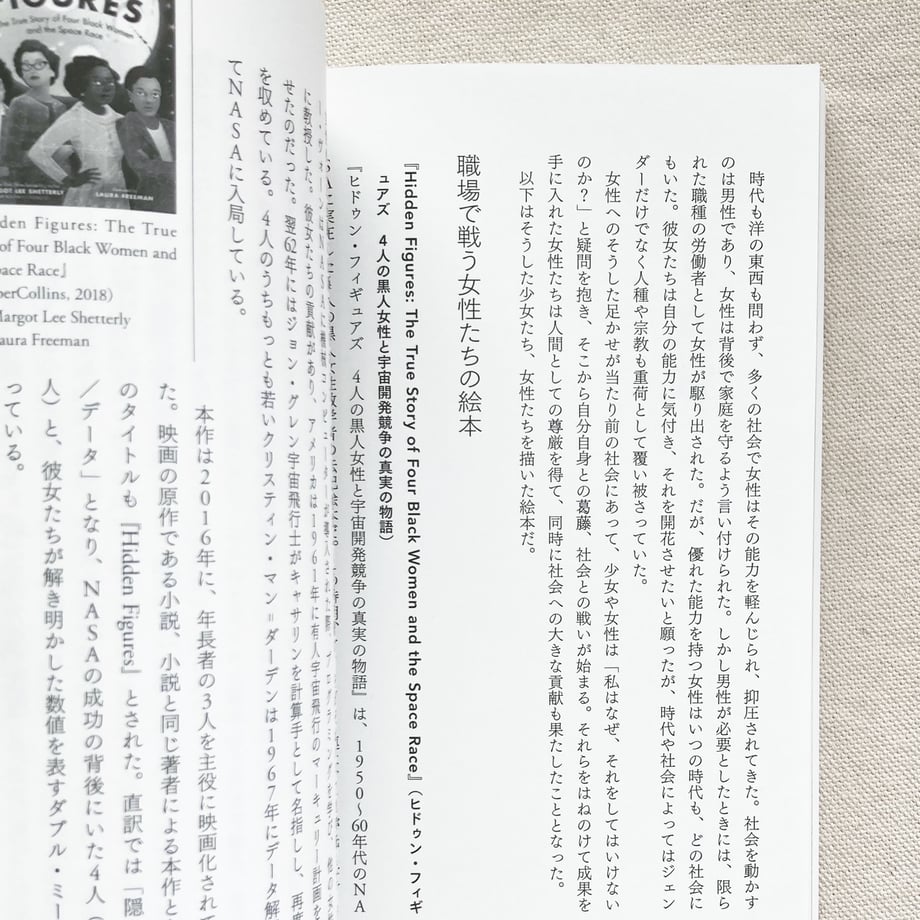 時代も洋の東西も問わず、多くの社会で女性はその能力を軽んじられ、抑圧されてきた。社会を動かす
のは男性であり、女性は背後で家庭を守るよう言い付けられた。しかし男性が必要としたときには、限ら
れた職種の労働者として女性が駆り出された。だが、優れた能力を持つ女性はいつの時代も、どの社会に
もいた。彼女たちは自分の能力に気付き、それを開花させたいと願ったが、時代や社会によってはジェン
ダーだけでなく人種や宗教も重荷として覆い被さっていた。
女性へのそうした足かせが当たり前の社会にあって、少女や女性は「私はなぜ、それをしてはいけない
のか?」と疑問を抱き、そこから自分自身との葛藤、社会との戦いが始まる。それらをはねのけて成果を
手に入れた女性たちは人間としての尊厳を得て、同時に社会への大きな貢献も果たしたこととなった。
以下はそうした少女たち、女性たちを描いた絵本だ。
職場で戦う女性たちの絵本
『Hidden Figures: The True Story of Four Black Women and the Space Race』(ヒドゥン・フィギ
ュアズ 4人の黒人女性と宇宙開発競争の真実の物語)
『ヒドゥン・フィギュアズ 4人の黒人女性と宇宙開発競争の真実の物語』は、1950〜60年代のNA
に教授した。彼女たちの貢献があり、アメリカは1961年に有人宇宙飛行のマーキュリー計画を
せたのだった。翌62年にはジョン・グレン宇宙飛行士がキャサリンを計算手として名指しし、再度
を収めている。4人のうちもっとも若いクリスティン・マン=ダーデンは1967年にデータ解
てNASAに入局している。
FIGURES
The True Story of Four Black Women
and the Space Race
GOT LEE SHETTERLY
LAURA FREEMAN
den Figures: The True
of Four Black Women and
pace Race』
perCollins, 2018)
Margot Lee Shetterly
aura Freeman
本作は2016年に、年長者の3人を主役に映画化されて
た。映画の原作である小説、小説と同じ著者による本作と
のタイトルも『Hidden Figures』とされた。直訳では「隠
/データ」となり、NASAの成功の背後にいた4人(
人)と、彼女たちが解き明かした数値を表すダブル・ミー
っている。